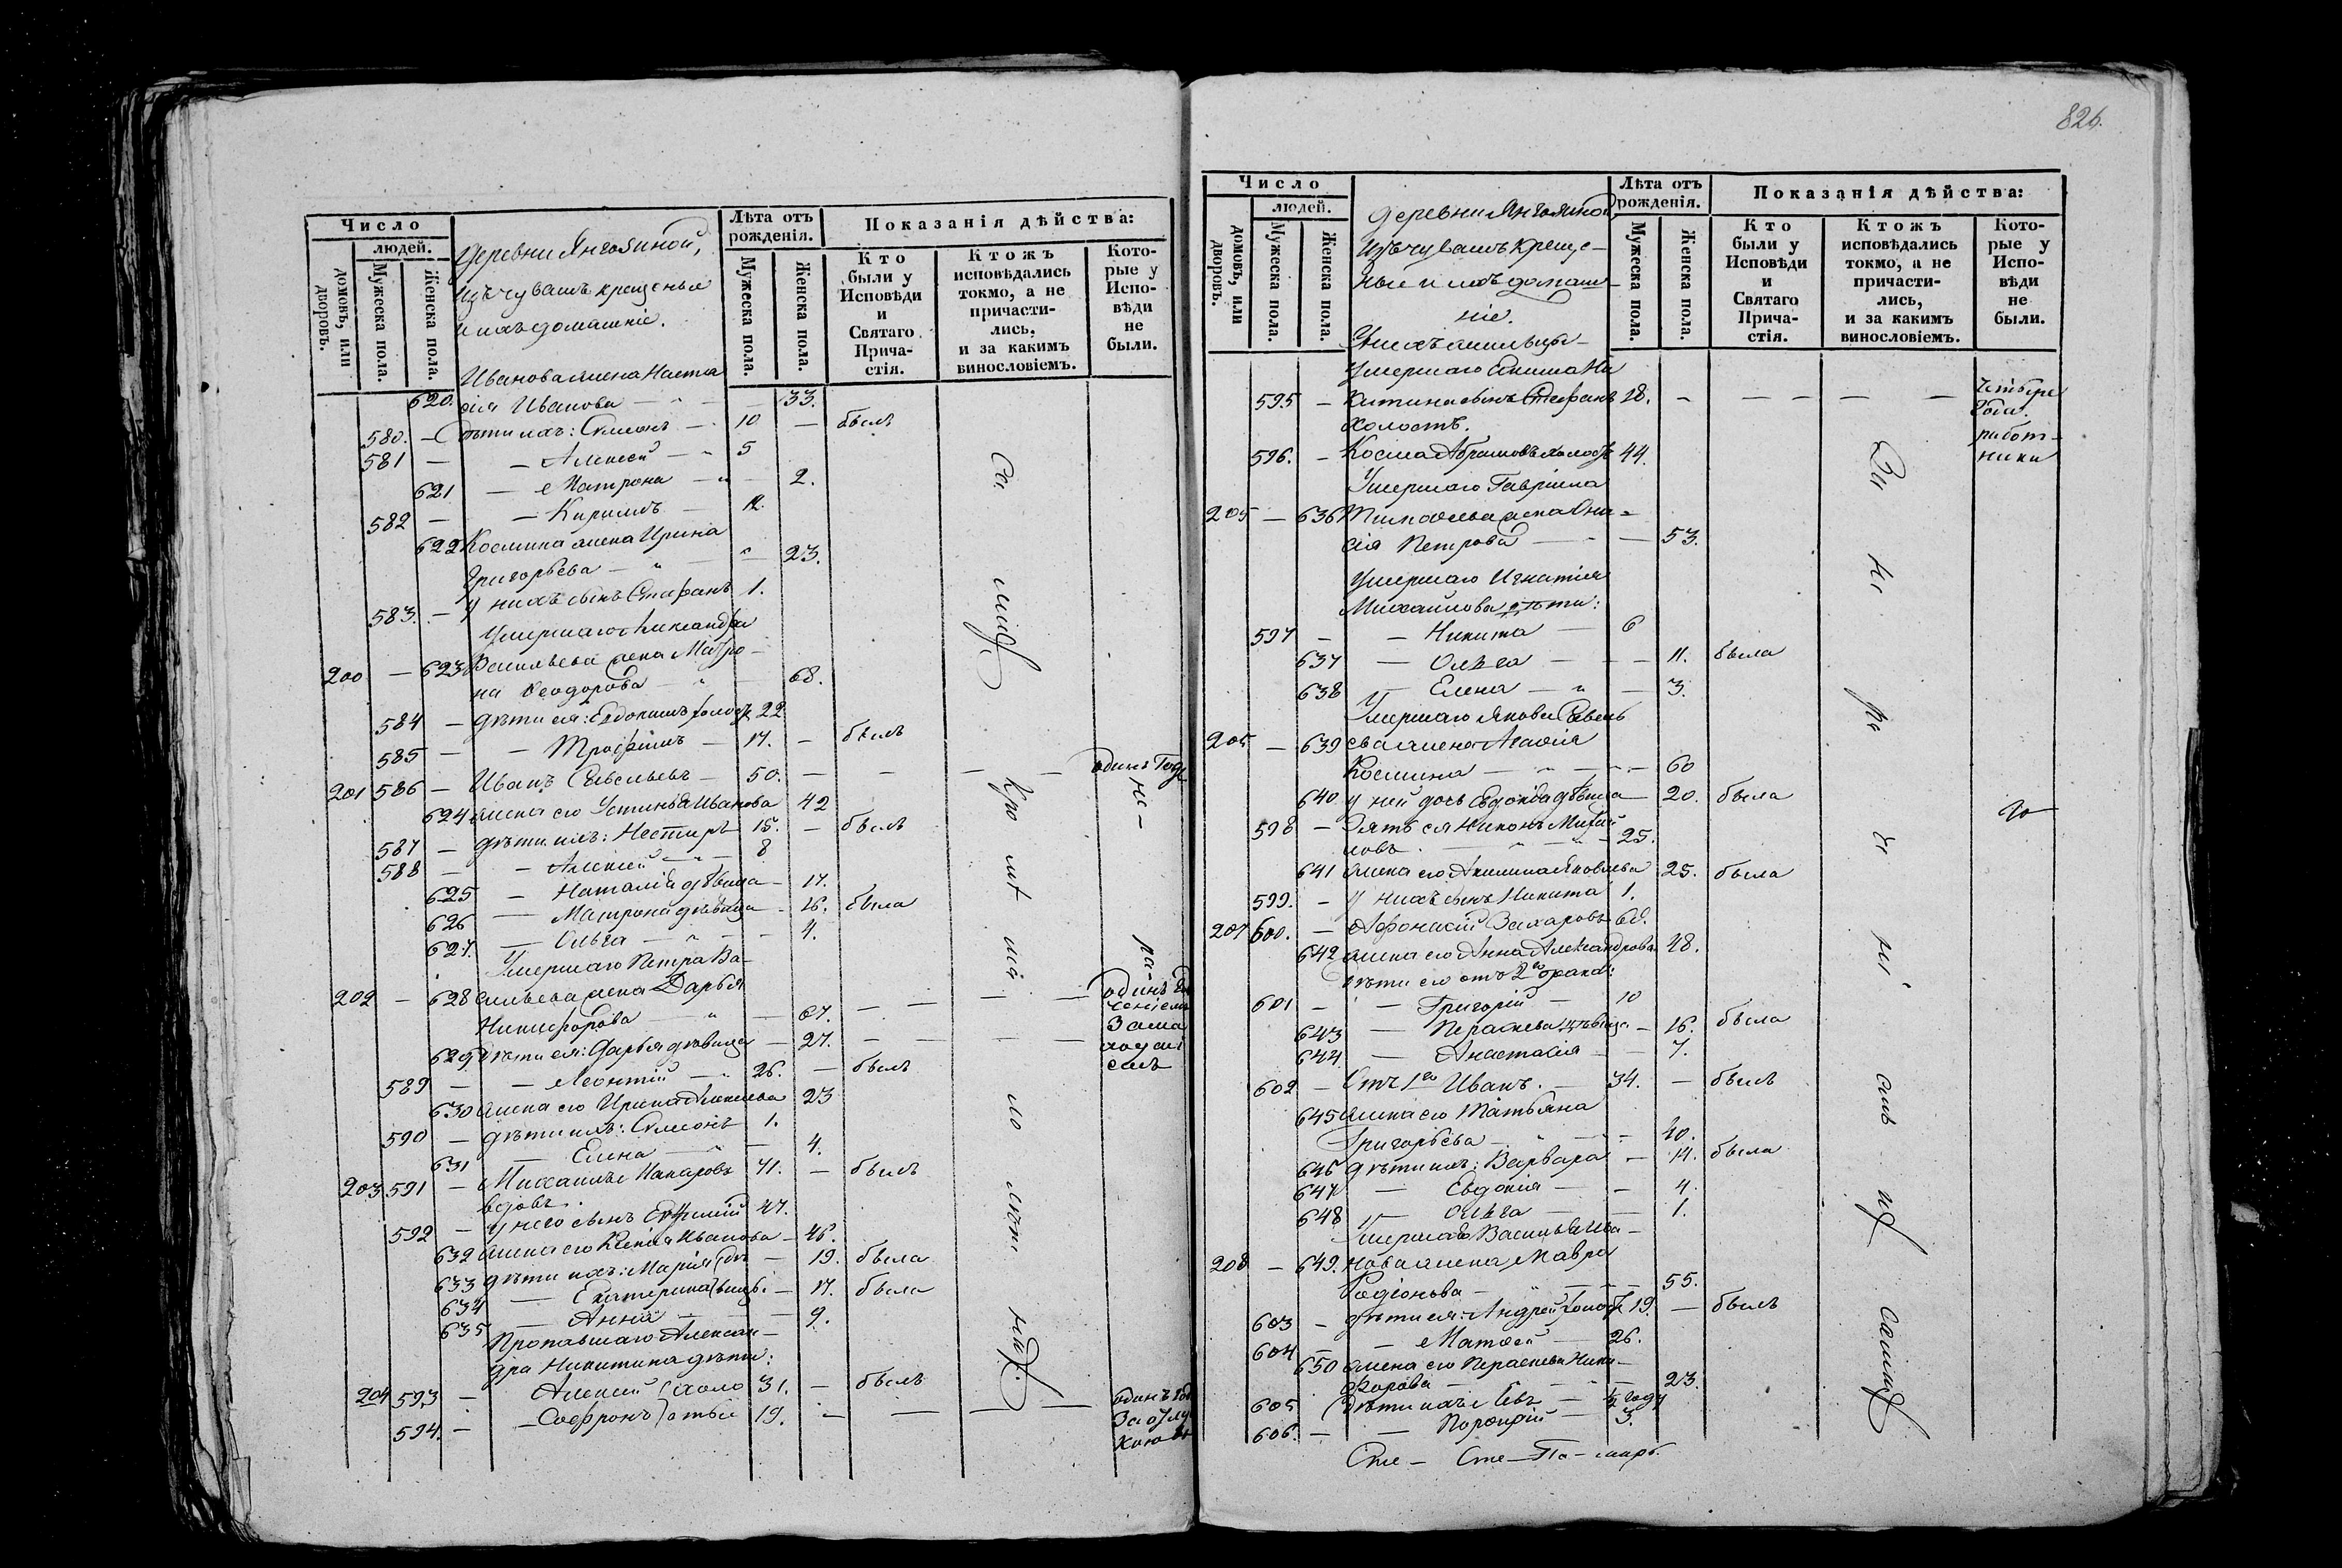 Число
людей.
домовъ, или дворовъ.
Мужеска пола.
Женска пола.
деревни Янгояиной,
изъ чувашъ крещеные
и ихъ домашніе.
Лѣта отъ рожденія.
Мужеска пола.
Женска пола.
Показанія дѣйства:
Кто были у Исповѣди и Святаго Причастія.
Ктожъ исповѣдались токмо, а не причастились, и за какимъ винословіемъ.
Которые у Исповѣди не были.
Иванова жена Наста
620. сія Иванова 33.
580. – Дѣти ихъ: Симеонъ – 10 – былъ
581 – – Алексей – 5
621 – Матрона – 2.
582 – – Кирилъ –
622 Космина жена Ирина
Григорьева – 23.
583. – У нихъ сынъ Стефанъ 1.
Умершаго Александра
200 – 623 Васильева жена Матро–
на Феодорова – 68.
584 – дѣти ея: Евдокимъ холост 22
585 – – Трофимъ – 17. – былъ
201 586 – Иванъ Савельевъ – 50. – – – – одинъ Годъ
624 жена его Устинья Иванова 42
587 – дѣти ихъ: Несторъ 15. – былъ
588 – – Алексей – 8
625 – Наталія дѣвица – 17.
626 – Матрона дѣвица – 16. была
627. – Ольга – 4.
Умершаго Петра Ва–
202 – 628 сильева жена Дарья
Никифорова – 67. – – – –
629 Дѣти ея: Дарья дѣвица – 27. – – – –
589 – – Леонтій – 26. – былъ
630 жена его Ирина Алексеева 23
590 – дѣти ихъ: Симеонъ 1.
631 – Елена – 4.
203 591 – Михаилъ Макаровъ 71. – былъ
вдовъ.
592 – у него сынъ Евфимій 47.
632 жена его Ксенія Иванова – 46.
633 дѣти ихъ: Марія – 19. была
634 – Екатерина – 17. была
635 – Анна – 9.
Пропавшаго Алексан–
дра Никитина дѣти:
204 593 – Алексей (холо 31. – былъ
594. – – Софронъ) стые 19. – – – –
826.
Число
людей.
домовъ, или дворовъ.
Мужеска пола.
Женска пола.
деревни Янгояиной
изъ чувашъ креще–
ные и ихъ домаш–
ніе.
Лѣта отъ рожденія.
Мужеска пола.
Женска пола.
Показанія дѣйства:
Кто были у Исповѣди и Святаго Причастія.
Ктожъ исповѣдались токмо, а не причастились, и за какимъ винословіемъ.
Которые у Исповѣди не были.
Умершаго
595 – китина сынъ Стефанъ 18. – – – – –
холостъ.
596. – Косма Абрамовъ холостъ 44.
Умершаго Гавріила
205 – 636 Тимофеева жена Ани–
сія Петрова – 53.
Умершаго Игнатія
Михаилова дѣти:
597 – – Никита – 6
637 – Ольга – 11. была
638 – Елена – 3.
Умершаго Якова Савель
205 – 639 ева жена Агафія
Космина – 60
640 у ней дочь Евдокія дѣвица 20. была
598 – Зять ея Никонъ Михай
ловъ – 25.
641 жена его Акилина Яковлева 25. была
599. – у нихъ сынъ Никита 1.
207 600. – Афонасій Захаровъ 68.
642 жена его Анна Александрова 48.
Дѣти его отъ 2го брака:
601 – – Григорій – 10
643 – Параскева дѣвица – 16. была
644 – Анастасія – 7.
602 – Отъ 1го Иванъ. – 34. – былъ
645 жена его Татьяна
Григорьева – 40.
646 дѣти ихъ: Варвара – 14. была
647 – Евдокія – 4.
648 – Ольга – 1.
Умершаго Василья Ива–
208 – 649. нова жена Мавра
Родіонова – 55.
603 – дѣти ея: Андрей холостъ 19. – былъ
604 – – Матвей – 26.
650 жена его Параскева Ники–
форова – 23.
605 Дѣти ихъ: Левъ – ½ году
606. – – Порфирій – 3.